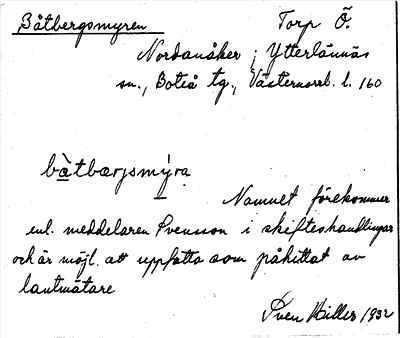 Båtbergsmyren Torp Ö.
Nordanåker i Ytterlännäs
sn., Boteå tg., Västernorrl. l. 160
bàtbærjsmýra
Namnet förekommer
enl. meddelaren Svensson i skifteshandlingar
och är möjl. att uppfatta som påhittat av
lantmätare
Sven Hiller 1932